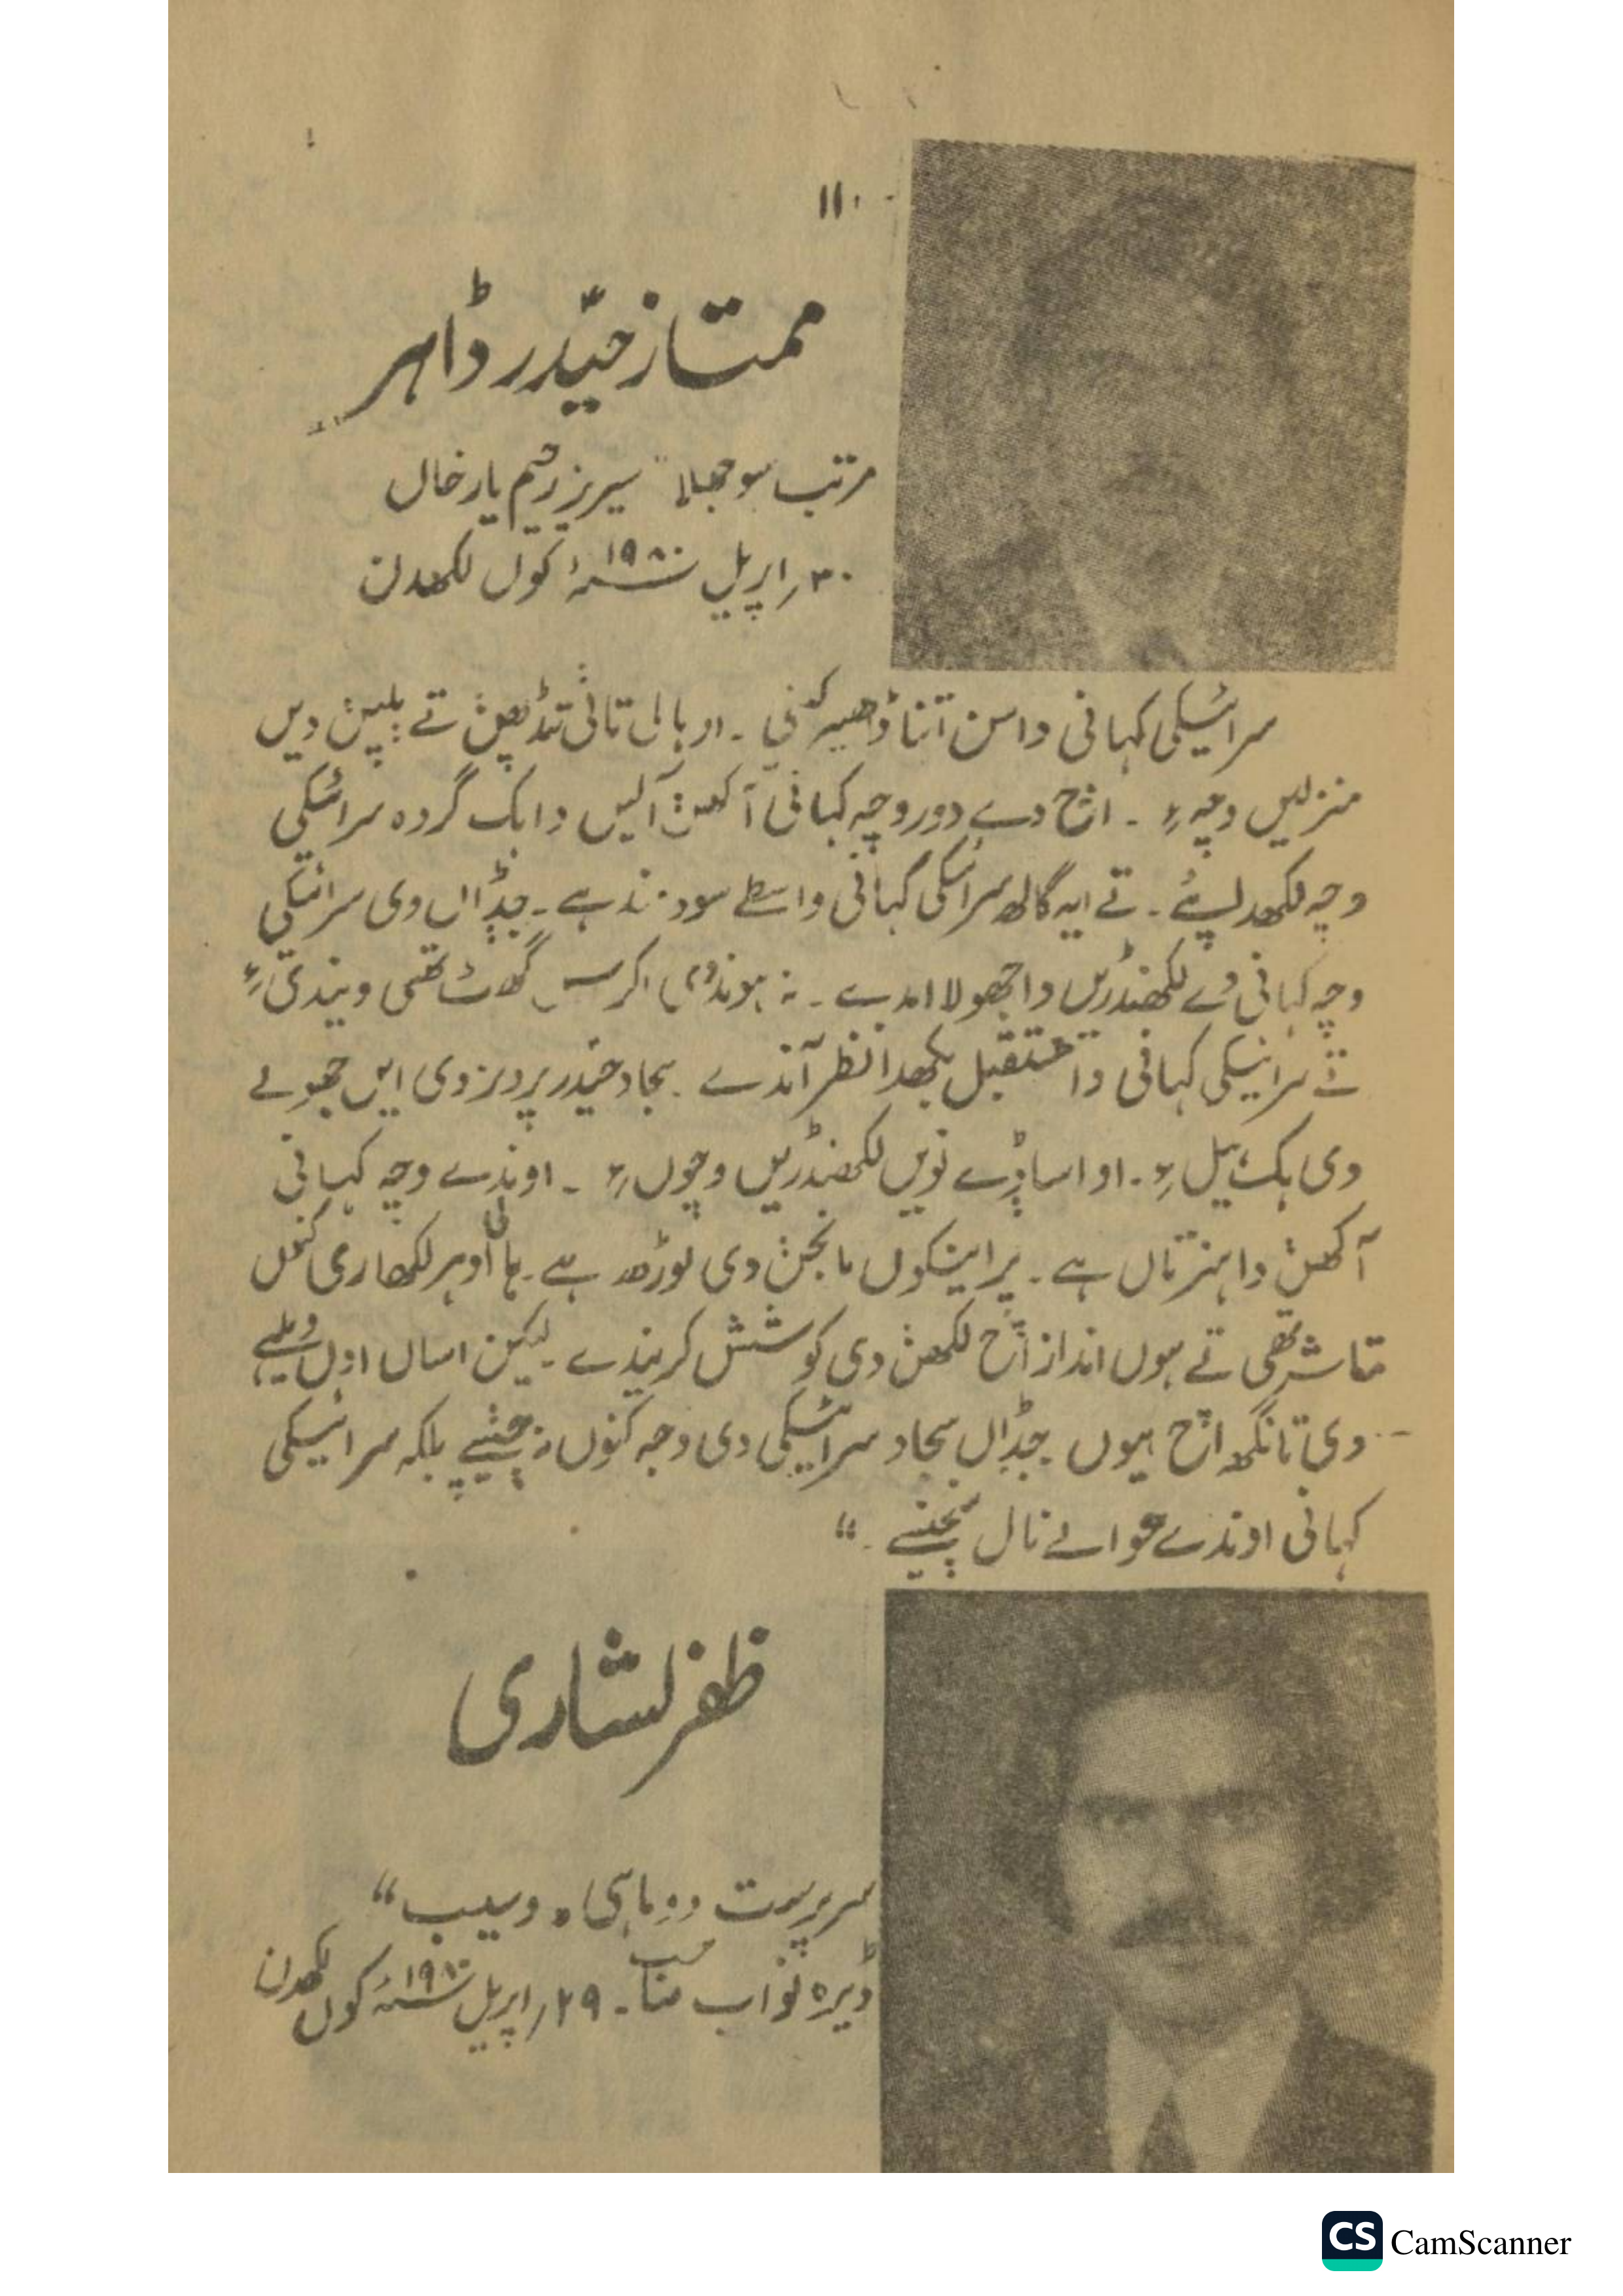 ۱۱۰
ممتاز حیدر ڈاہر
مرتب سوجھلا" سیریز رحیم یار خاں
۳۰؍اپریل ۱۹۸۰ء کوں لکھدن
سرائیکی کہانی دا سن اتنا وڈا نی ۔ او بالی تائیں تے پلݨ دیں
منزلیں وچ ءِ ۔ اڄ دے دور وچ کہانی آکھݨ آلیں دا ہک گروہ سرائیکی
وچ لکھدا پئے ۔ تے ایہ ڳالھ سرائیکی کہانی واسطے سود مند ہے ۔ جݙاں وی سرائیکی
وچ کہانی دے لکھݨ دا اندے ۔ تھی ویندی ءِ
تے سرائیکی کہانی دا مستقبل نظر آندے ۔ سجاد حیدر پرویز وی ایں جھولے
دی ہک ءِ ۔ او اساݙے نویں لکھݨ وچوں ءِ ۔ اوندے وچ کہانی
آکھݨ دا ہنر تاں ہے ۔ پر اینکوں مانجݨ دی لوڑھ ہے ۔ ہالی او ہر لکھاری کنوں
متاثر تھی تے ہوں انداز اچ لکھݨ دی کوشش کریندے ۔ لیکن اساں اوں ویلے
دی تانگھ اچ ہیوں جݙاں سجاد سرائیکی دی وجہ کنوں نہ بلکہ سرائیکی
کہانی اوندے حوالے نال ۔"
ظفر لشاری
سرپرست دو ماہی "وسیب"
ڈیرہ نواب صاحب ۔ ۲۹؍اپریل ۱۹۸۰ء کوں لکھدن
CS CamScanner